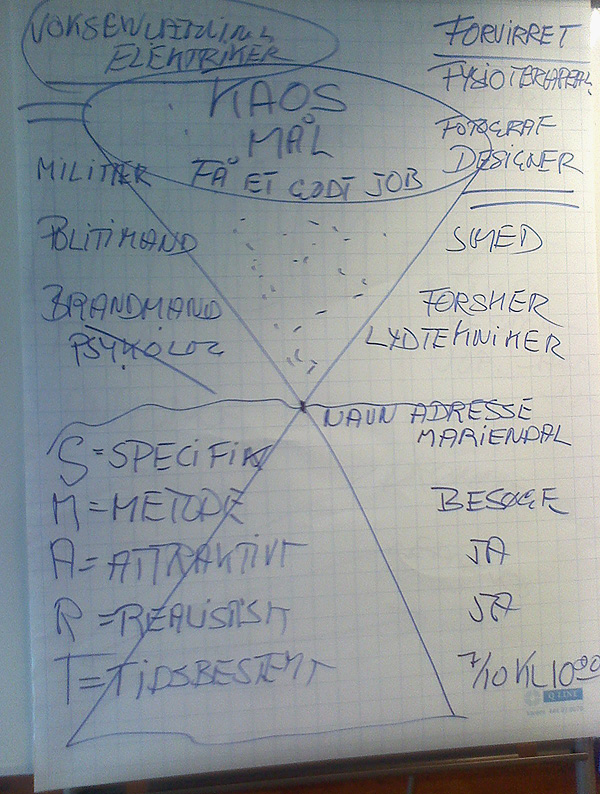 VOKSENUDDANNELSE
ELEKTRIKER
FORVIRRET
FYSIOTERAPEUT
KAOS
MÅL
FÅ ET GODT JOB
FOTOGRAF
DESIGNER
MILITÆR
POLITIMAND
SMED
BRANDMAND
PSYKOLOG
FORSKER
LYDTEKNIKER
NAVN ADRESSE
MARIENDAL
S = SPECIFIK
M = METODE
BESØGE
A = ATTRAKTIVT
JA
R = REALISTISK
JA
T = TIDSBESTEMT
7/10 KL 1000
Q-LINE